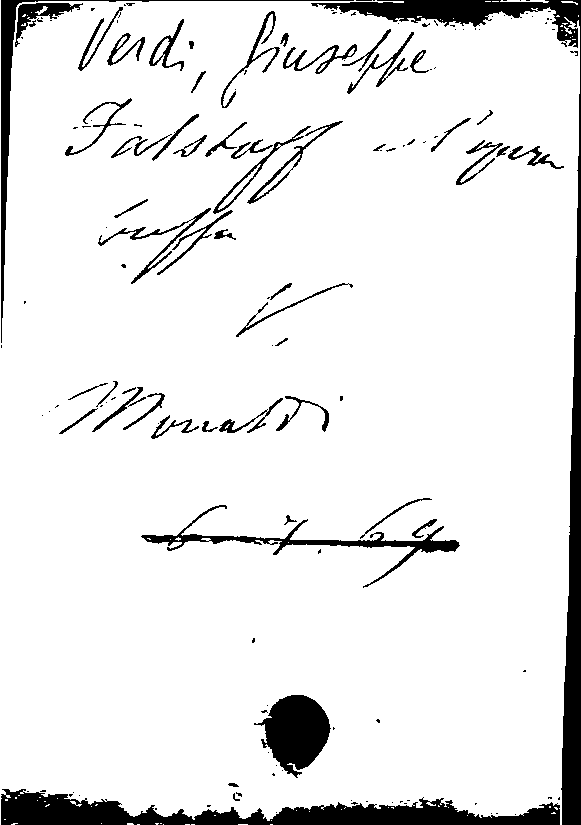 Verdi, Giuseppe
Falstaff e l'opera
buffa
V.
Monaldi
6.7.69